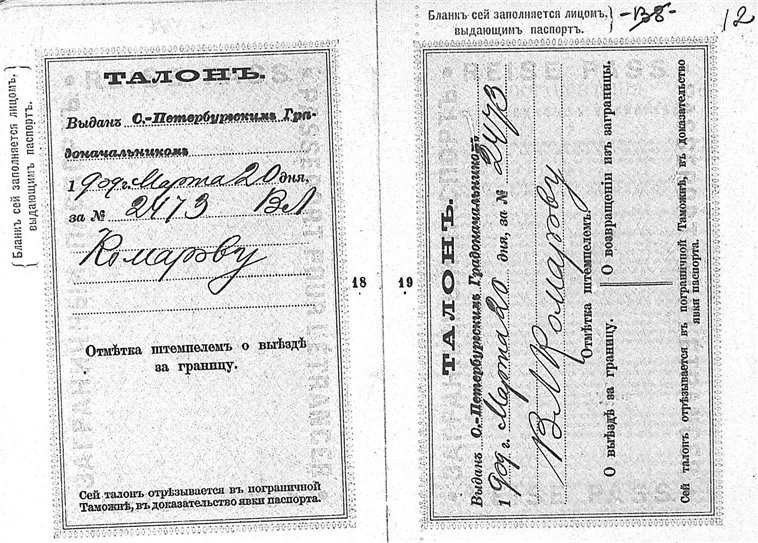 Бланкъ сей заполняется лицомъ,
выдающимъ паспортъ.
ТАЛОНЪ.
Выданъ С.-Петербургскимъ Гра-
доначальникомъ
190 г. Марта 20 дня,
за № 2473 ВЛ
Комарову
Отмѣтка штемпелемъ о выѣздѣ
за границу.
Сей талонъ отрѣзывается въ пограничной
Таможнѣ, въ доказательство явки паспорта.
18
Бланкъ сей заполняется лицомъ,
выдающимъ паспортъ.
12
19
ТАЛОНЪ.
Выданъ С.-Петербургскимъ Градоначальникомъ
190 г. Марта 20 дня, за № 2473
ВЛ Комарову
Отмѣтка штемпелемъ.
О выѣздѣ за границу.
О возвращеніи изъ заграницы.
Сей талонъ отрѣзывается въ пограничной Таможнѣ, въ доказательство
явки паспорта.
REISE PASS
PASSEPORT POUR L'ÉTRANGER
REISE PASS